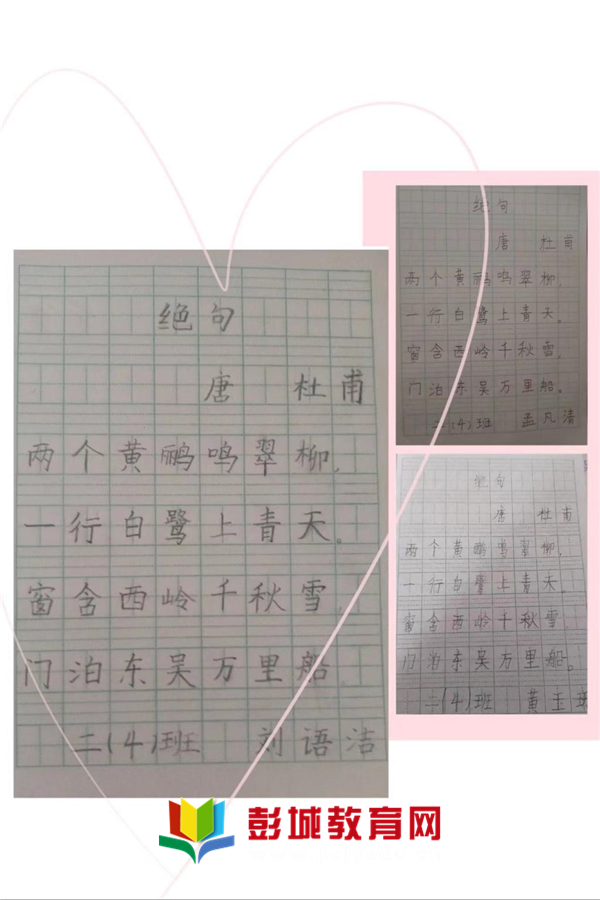 绝句
唐 杜甫
两个黄鹂鸣翠柳,
一行白鹭上青天。
窗含西岭千秋雪,
门泊东吴万里船
二(4)班 刘语洁
绝句
唐 杜甫
两个黄鹂鸣翠柳,
一行白鹭上青天。
窗含西岭千秋雪,
门泊东吴万里船。
二(4)班 孟凡清
绝句
唐 杜甫
两个黄鹂鸣翠柳,
一行白鹭上青天。
窗含西岭千秋雪
门泊东吴万里船。
二(4)班 黄玉
彭城教育网